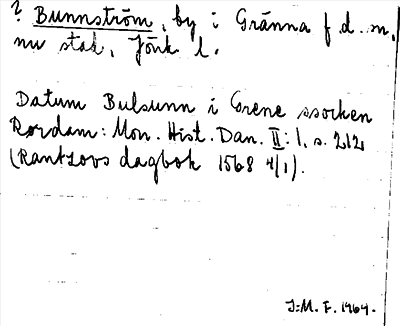 ? Bunnström, by i Gränna f.d. m,
nu stad, Jönk l.
Datum Bulsunn i Grene ssocken
Rordam: Mon. Hist. Dan. II: 1, s. 212
(Rantzovs dagbok 1568 4/1).
J.M. F. 1964.